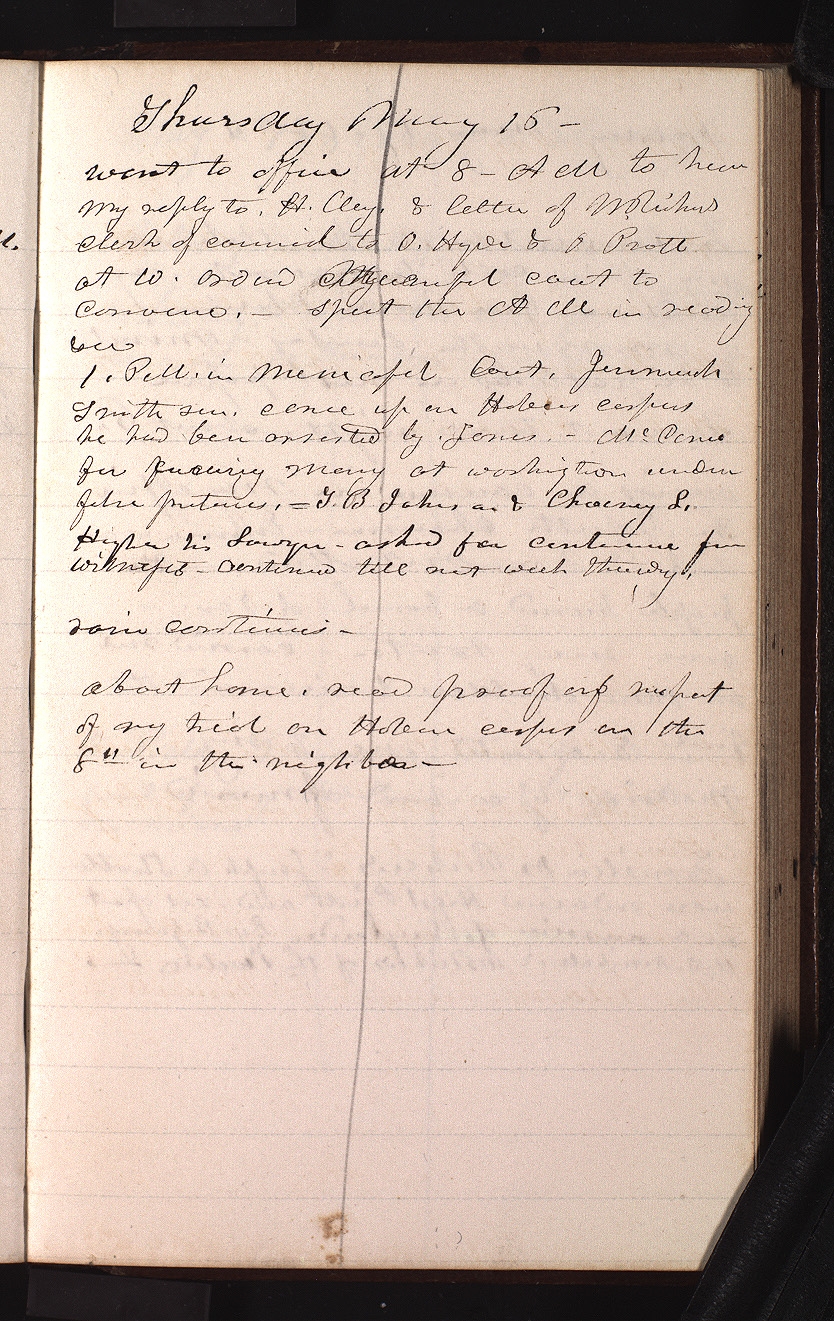 Thursday May 16 –
went to office at 8 – A M to hear
my reply to. H. Clay. & letter of W Richards
clerk of council to O. Hyde & O Pratt
at 10. ordered Municipal court to
convene. – spent the A M in reading
&c
1. P.M. in Municipal Court. Jeremiah
Smith sen. came up on Habeas corpus
he had been arrested by Jones. – McCame
for procuring money at washington under
false pretences. – T. B Johnson & Chancy L.
Higbee his Lawyer – asked for continuance for
witnesses – continued till next week thursday.
rain continues –
about home. read proof of report
of my trial on Habeas corpus on the
8th in the neighbor –